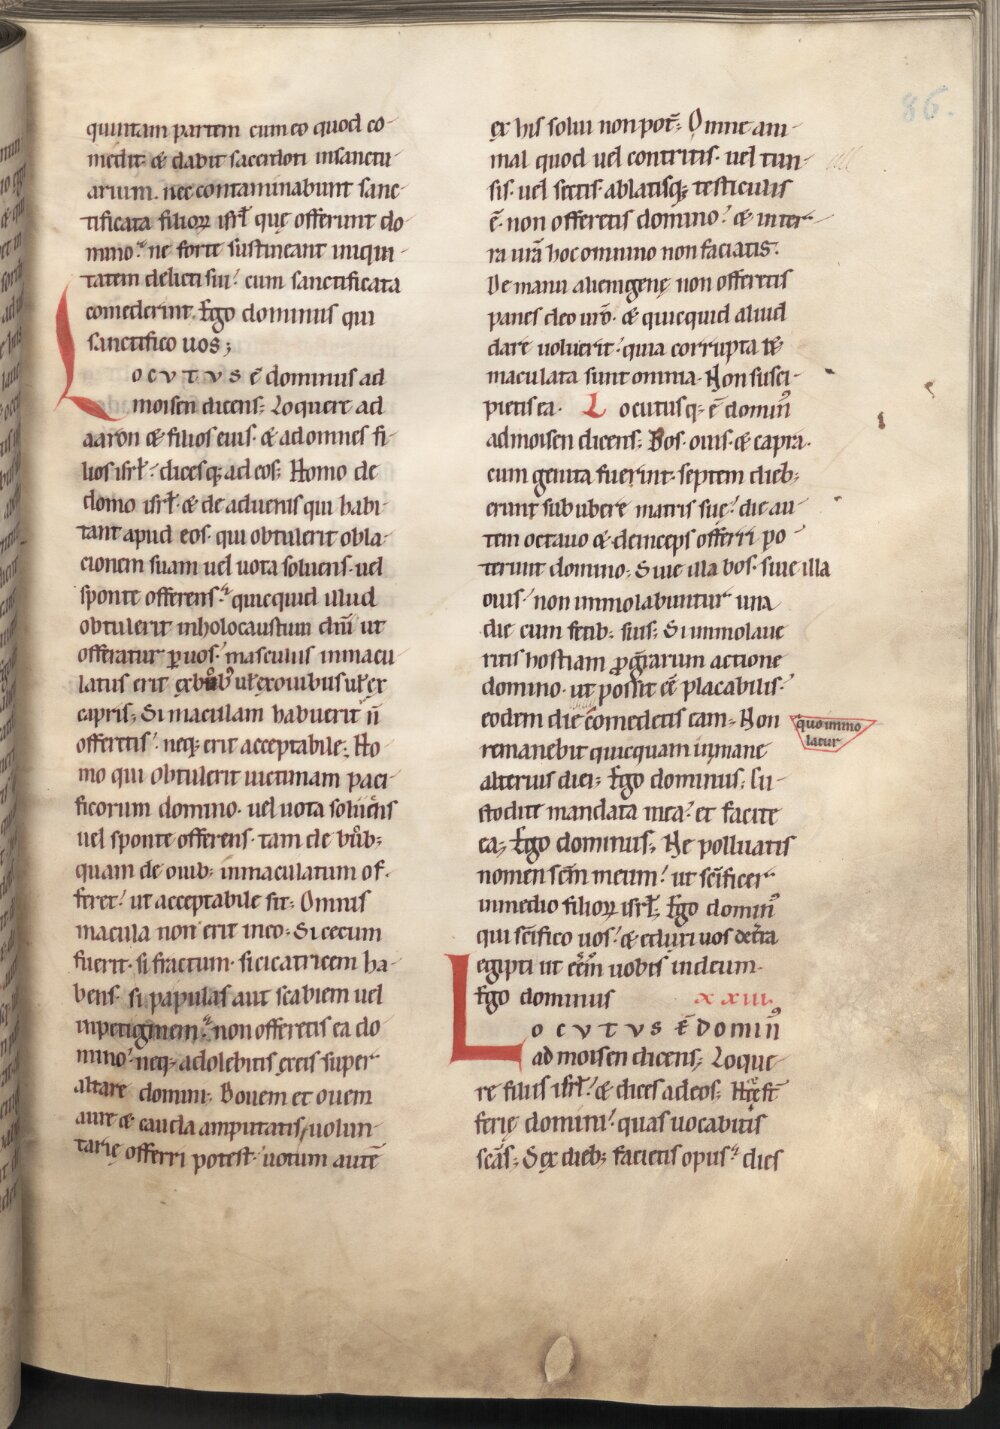 86.
quintam partem cum eo quod co-
medit· & dabit sacerdoti insanctu-
arium. nec contaminabunt sanc-
tificata filioꝝ isrł quę offerunt do-
mino. ne forte sustineant iniqui-
tatem delicti sui. cum sanctificata
comederint. Ego dominus qui
sanctifico uos;
LOCVTVS ē dominus ad
moisen dicens; Loquere ad
aaron & filios eius· & ad omnes fi-
lios isrł. dicesq; ad eos; Homo de
domo isrł· & de aduenis qui habi-
tant apud eos· qui obtulerit obla-
cionem suam uel uota soluens· uel
sponte offerens. quicquid illud
obtulerit inholocaustum dn̄i ut
offeratur ꝑ uos. masculus inmacu-
latus erit ex bub; uł exouibus uł ex
capris; Si maculam habuerit n̄
offeretis. neq; erit acceptabile; Ho-
mo qui obtulerit uictimam paci-
ficorum domino· uel uota soluens
uel sponte offerens· tam de bub;
quam de ouib; inmaculatum of-
feret. ut acceptabile sit; Omnis
macula non erit ineo; Si cecum
fuerit· si fractum· si cicatricem ha-
bens· si papulas aut scabiem uel
inpetiginem. non offeretis ea do-
mino· neq; adolebitis ex eis super
altare domini; Bouem et ouem
aure & cauda amputatis, uolun-
tarię offerri potest· uotum autē
ex his solui non pot̄; Omne ani-
mal quod uel contritis· uel tun-
sis· uel sectis· ablatisq; testiculis
ē· non offeretis domino. & inter-
ra ur̄a hoc omnino non faciatis.
De manu alienigenę non offeretis
panes deo ur̄o· & quicquid aliud
dare uoluerit. quia corrupta &
maculata sunt omnia· Non susci-
pietis ea· Locutusq; ē domin9
ad moisen dicens; Bos· ouis· & capra·
cum genita fuerint· septem dieb;
erunt sub ubere matris suę. die au-
tem octauo & deinceps offerri po-
terunt domino; Siue illa bos· siue illa
ouis· non immolabuntur una
die cum fetib; suis; Si immolaue-
ritis hostiam ꝓ gr̄arum actione
domino· ut possit eē placabilis.
eodem die comedetis eam; Non
quo immo
latur
remanebit quicquam inmane
alterius diei; Ego dominus; Cu-
stodite mandata mea. et facite
ea; Ego dominus; Ne polluatis
nomen sc̄m meum. ut sc̄ificer
inmedio filioꝝ isrł; Ego domin9
qui sc̄ifico uos. & eduxi uos de tr̄a
egipti ut eēm uobis in deum·
Ego dominus xxiii.
LOCVTVS ē DOMIN9
ad moisen dicens; Loque-
re filiis isrł. & dices ad eos; Hę s̄t
ferię domini. quas uocabitis
sc̄as; Sex dieb; facietis opus. dies